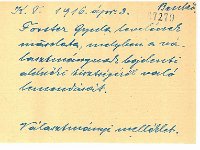 K. V. 1916. ápr. 3.
17279
Forster Gyula levelének
másolata, melyben a vá-
lasztmánynak bejelenti
elnöki tisztségéről való
lemondását.
Választmányi melléklet.